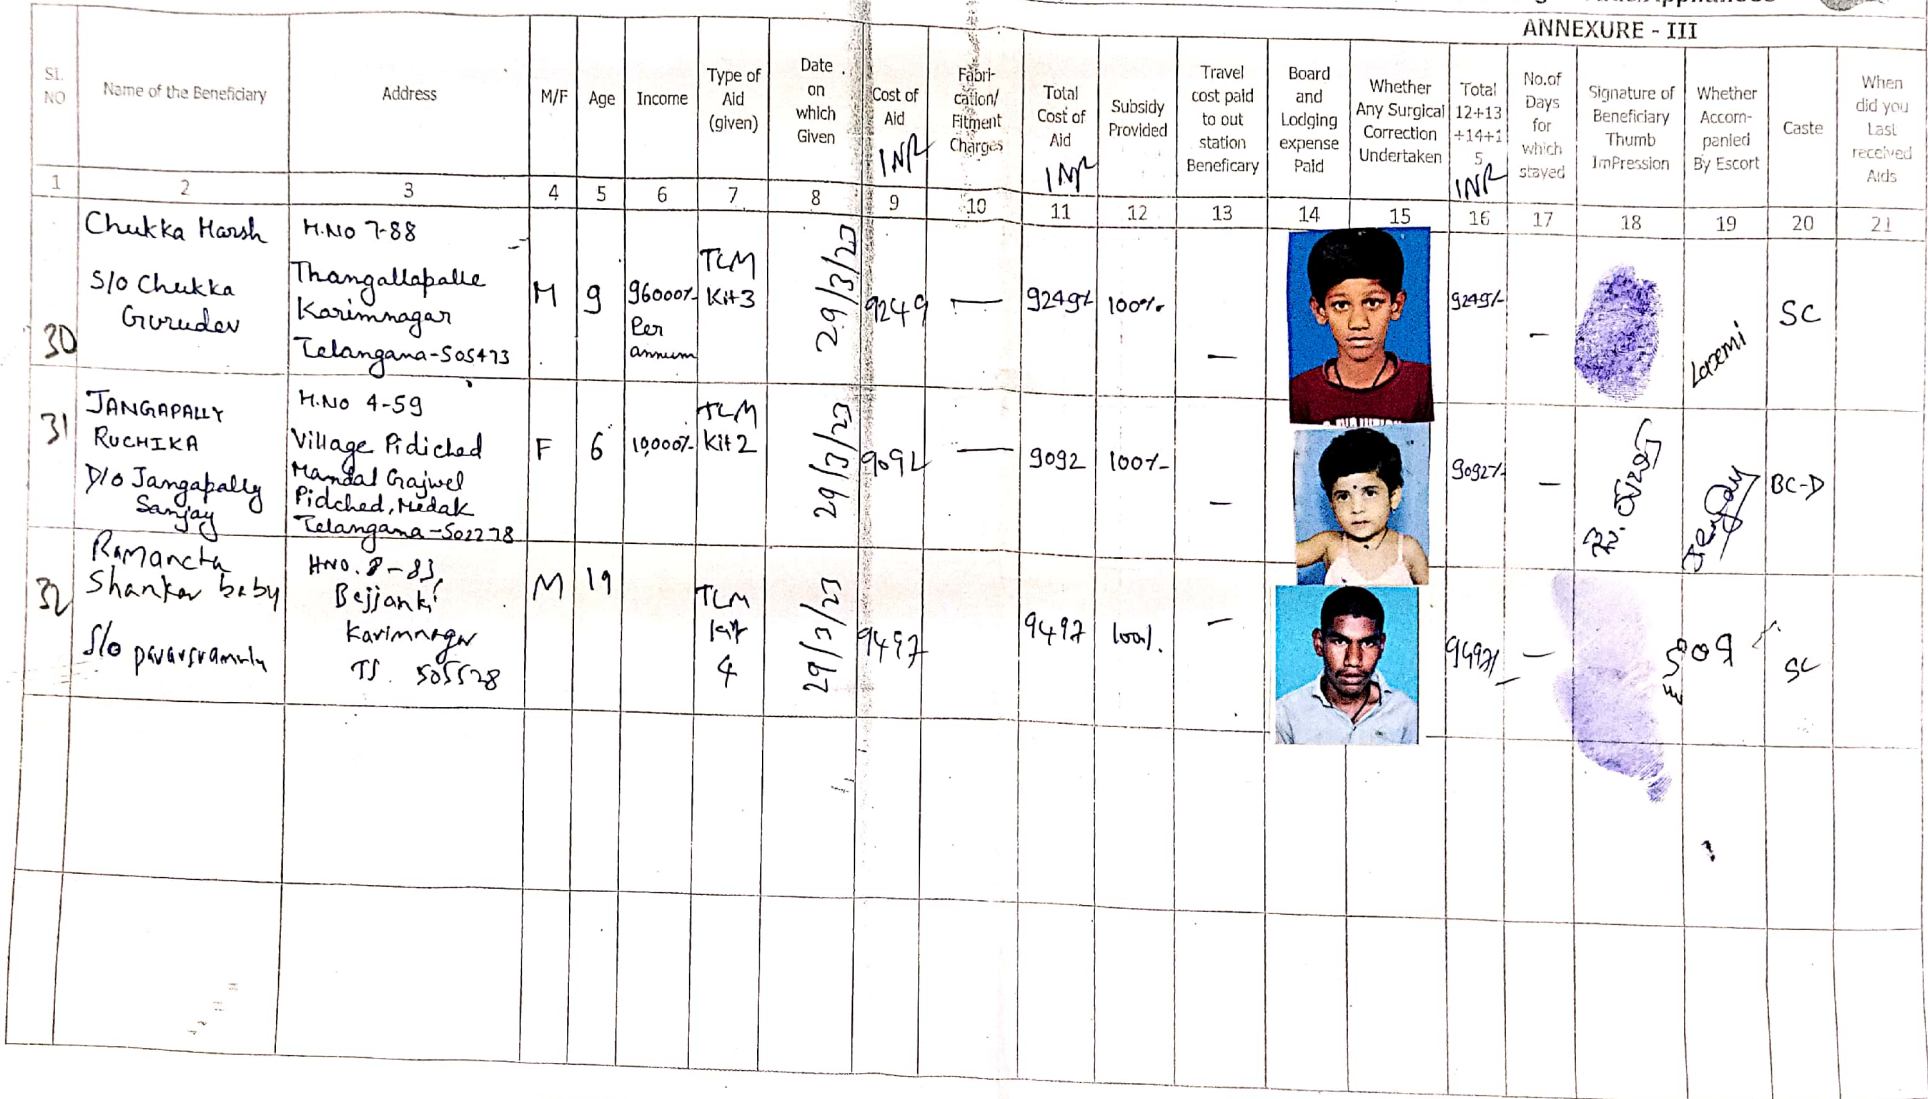 ANNEXURE - III
SL. NO
Name of the Beneficiary
Address
M/F
Age
Income
Type of Aid (given)
Date on which Given
Cost of Aid INR
Fabri-cation/ Fitment Charges
Total Cost of Aid INR
Subsidy Provided
Travel cost paid to out station Beneficary
Board and Lodging expense Paid
Whether Any Surgical Correction Undertaken
Total 12+13 +14+1 5 INR
No.of Days for which stayed
Signature of Beneficiary Thumb ImPression
Whether Accom-panied By Escort
Caste
When did you Last received Aids
1 2 3 4 5 6 7 8 9 10 11 12 13 14 15 16 17 18 19 20 21
30
Chukka Harsh
S/o Chukka
Gurudev
H.No 7-88
Thangallapalle
Karimnagar
Telangana-505473
M
9
96000/-
Per
annum
TLM
Kit 3
29/3/23
9249
—
9249/-
100%
—
9249/-
—
Laxmi
SC
31
JANGAPALLY
RUCHIKA
D/o Jangapally
Sanjay
H.No 4-59
Village Pidiched
Mandal Gajwel
Pidched, Medak
Telangana-502278
F
6
10,000/-
TLM
Kit 2
29/3/23
9092
—
9092
100%
—
9092/-
—
BC-D
32
Ramancha
Shankar baby
S/o
HNO. 8-83,
Bejjanki
Karimnagar
TS. 505528
M
19
TLM
kit
4
29/3/23
9497
9497
100%.
—
9497/-
—
SC